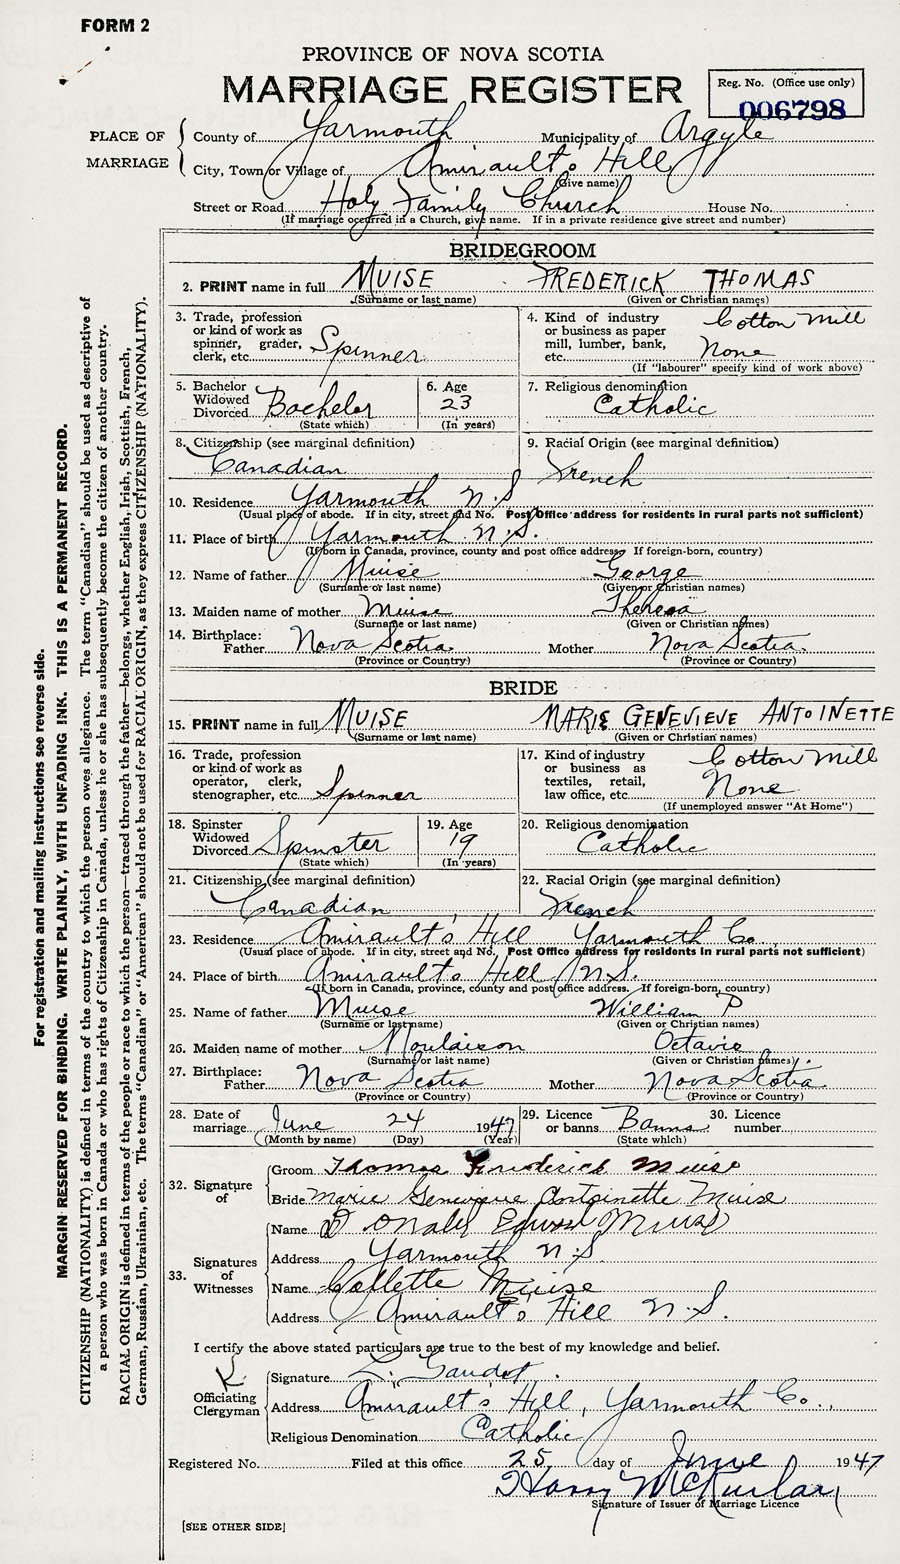 FORM 2
PROVINCE OF NOVA SCOTIA
MARRIAGE REGISTER
Reg. No. (Office use only)
006798
PLACE OF MARRIAGE
County of Yarmouth Municipality of Argyle
City, Town or Village of Amirault's Hill
(Give name)
Street or Road Holy Family Church House No.
(If marriage occurred in a Church, give name. If in a private residence give street and number)
BRIDEGROOM
2. PRINT name in full MUISE FREDERICK THOMAS
(Surname or last name) (Given or Christian names)
3. Trade, profession or kind of work as spinner, grader, clerk, etc. Spinner
4. Kind of industry or business as paper mill, lumber, bank, etc. Cotton Mill None
(If "labourer" specify kind of work above)
5. Bachelor Widowed Divorced Bachelor
(State which)
6. Age 23
(In years)
7. Religious denomination Catholic
8. Citizenship (see marginal definition) Canadian
9. Racial Origin (see marginal definition) French
10. Residence Yarmouth N.S
(Usual place of abode. If in city, street and No. Post Office address for residents in rural parts not sufficient)
11. Place of birth Yarmouth N.S.
(If born in Canada, province, county and post office address. If foreign-born, country)
12. Name of father Muise George
(Surname or last name) (Given or Christian names)
13. Maiden name of mother Muise Theresa
(Surname or last name) (Given or Christian names)
14. Birthplace: Father Nova Scotia Mother Nova Scotia
(Province or Country) (Province or Country)
BRIDE
15. PRINT name in full MUISE MARIE GENEVIEVE ANTOINETTE
(Surname or last name) (Given or Christian names)
16. Trade, profession or kind of work as operator, clerk, stenographer, etc. Spinner
17. Kind of industry or business as textiles, retail, law office, etc. Cotton Mill None
(If unemployed answer "At Home")
18. Spinster Widowed Divorced Spinster
(State which)
19. Age 19
(In years)
20. Religious denomination Catholic
21. Citizenship (see marginal definition) Canadian
22. Racial Origin (see marginal definition) French
23. Residence Amirault's Hill Yarmouth Co.
(Usual place of abode. If in city, street and No. Post Office address for residents in rural parts not sufficient)
24. Place of birth Amirault's Hill N.S.
(If born in Canada, province, county and post office address. If foreign-born, country)
25. Name of father Muise William P
(Surname or last name) (Given or Christian names)
26. Maiden name of mother Moulaison Octavie
(Surname or last name) (Given or Christian names)
27. Birthplace: Father Nova Scotia Mother Nova Scotia
(Province or Country) (Province or Country)
28. Date of marriage June 24 1947
(Month by name) (Day) (Year)
29. Licence or banns Banns
(State which)
30. Licence number
32. Signature of
Groom Thomas Frederick Muise
Bride Marie Genevieve Antoinette Muise
33. Signatures of Witnesses
Name Donald Edward Muise
Address Yarmouth N.S
Name Collette Muise
Address Amirault's Hill N.S.
I certify the above stated particulars are true to the best of my knowledge and belief.
Officiating Clergyman
Signature L. Gaudet
Address Amirault's Hill, Yarmouth Co.,
Religious Denomination Catholic
Registered No. Filed at this office 25 day of June 1947
Signature of Issuer of Marriage Licence
[SEE OTHER SIDE]
For registration and mailing instructions see reverse side.
MARGIN RESERVED FOR BINDING. WRITE PLAINLY, WITH UNFADING INK. THIS IS A PERMANENT RECORD.
CITIZENSHIP (NATIONALITY) is defined in terms of the country to which the person owes allegiance. The term "Canadian" should be used as descriptive of
a person who was born in Canada or who has rights of Citizenship in Canada, unless he or she has subsequently become the citizen of another country.
RACIAL ORIGIN is defined in terms of the people or race to which the person—traced through the father—belongs, whether English, Irish, Scottish, French,
German, Russian, Ukrainian, etc. The terms "Canadian" or "American" should not be used for RACIAL ORIGIN, as they express CITIZENSHIP (NATIONALITY).